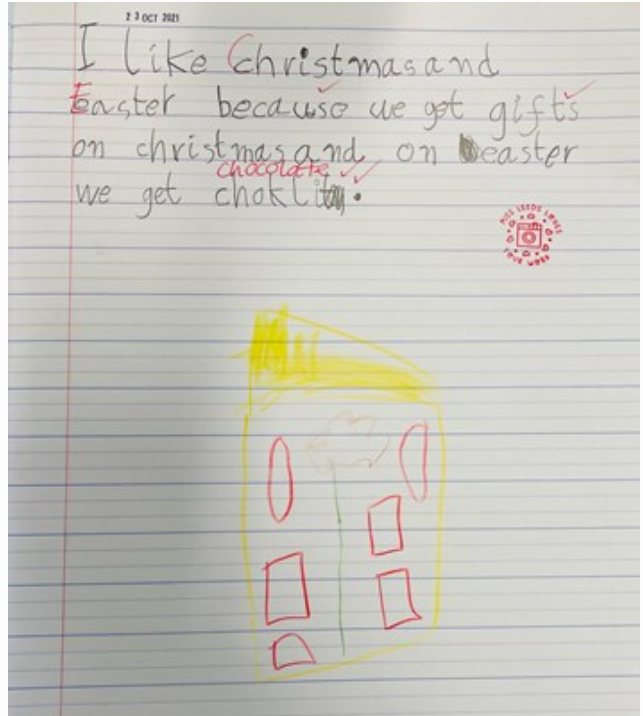 23 OCT 2021
I like Christmas and
Easter because we get gifts
on christmas and on easter
chocolate
we get choklit.
MISS LEEDS LOVES
YOUR WORK